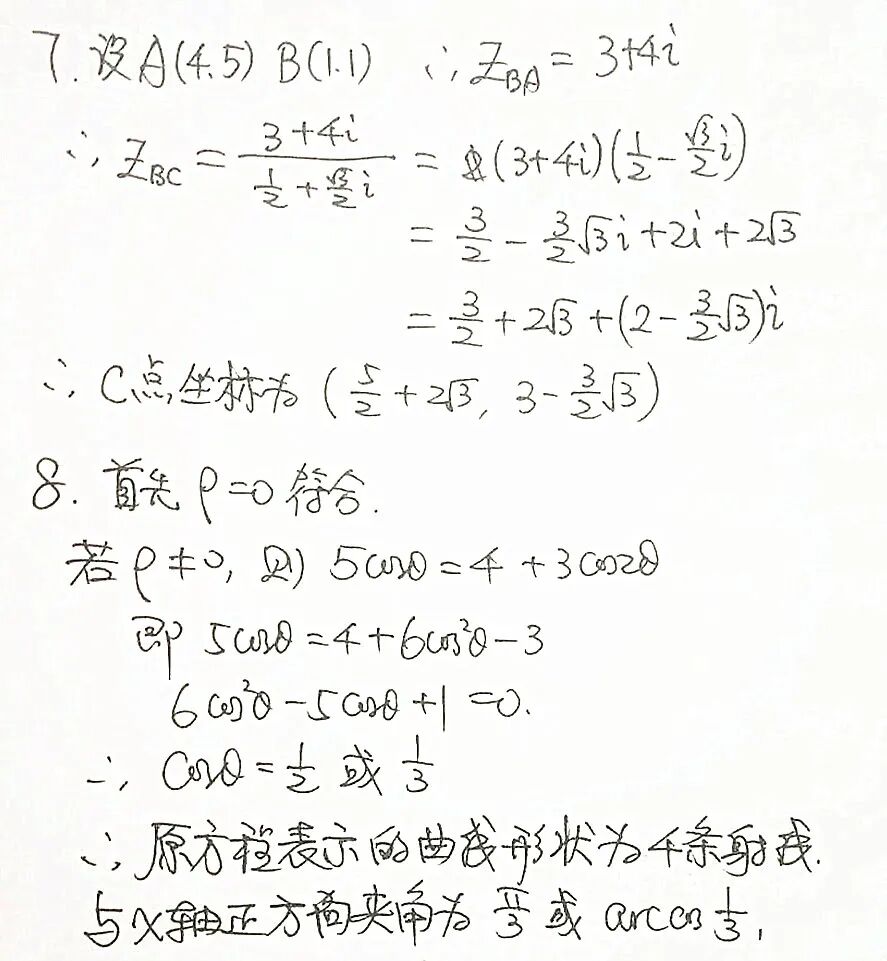 7. 设A(4.5) B(1.1) ∴ Z_BA = 3+4i
∴ Z_BC = \frac{3+4i}{\frac{1}{2}+\frac{\sqrt{3}}{2}i} = (3+4i)(\frac{1}{2}-\frac{\sqrt{3}}{2}i)
= \frac{3}{2} - \frac{3}{2}\sqrt{3}i + 2i + 2\sqrt{3}
= \frac{3}{2} + 2\sqrt{3} + (2-\frac{3}{2}\sqrt{3})i
∴ C点坐标为 (\frac{5}{2}+2\sqrt{3}, 3-\frac{3}{2}\sqrt{3})
8. 首先 ρ=0 符合.
若ρ≠0, 则 5cosθ = 4 + 3cos2θ
即 5cosθ = 4+6cos²θ-3
6cos²θ - 5cosθ + 1 = 0.
∴ cosθ = \frac{1}{2} 或 \frac{1}{3}
∴ 原方程表示的曲线形状为4条射线.
与x轴正方向夹角为 \frac{π}{3} 或 arccos \frac{1}{3}.